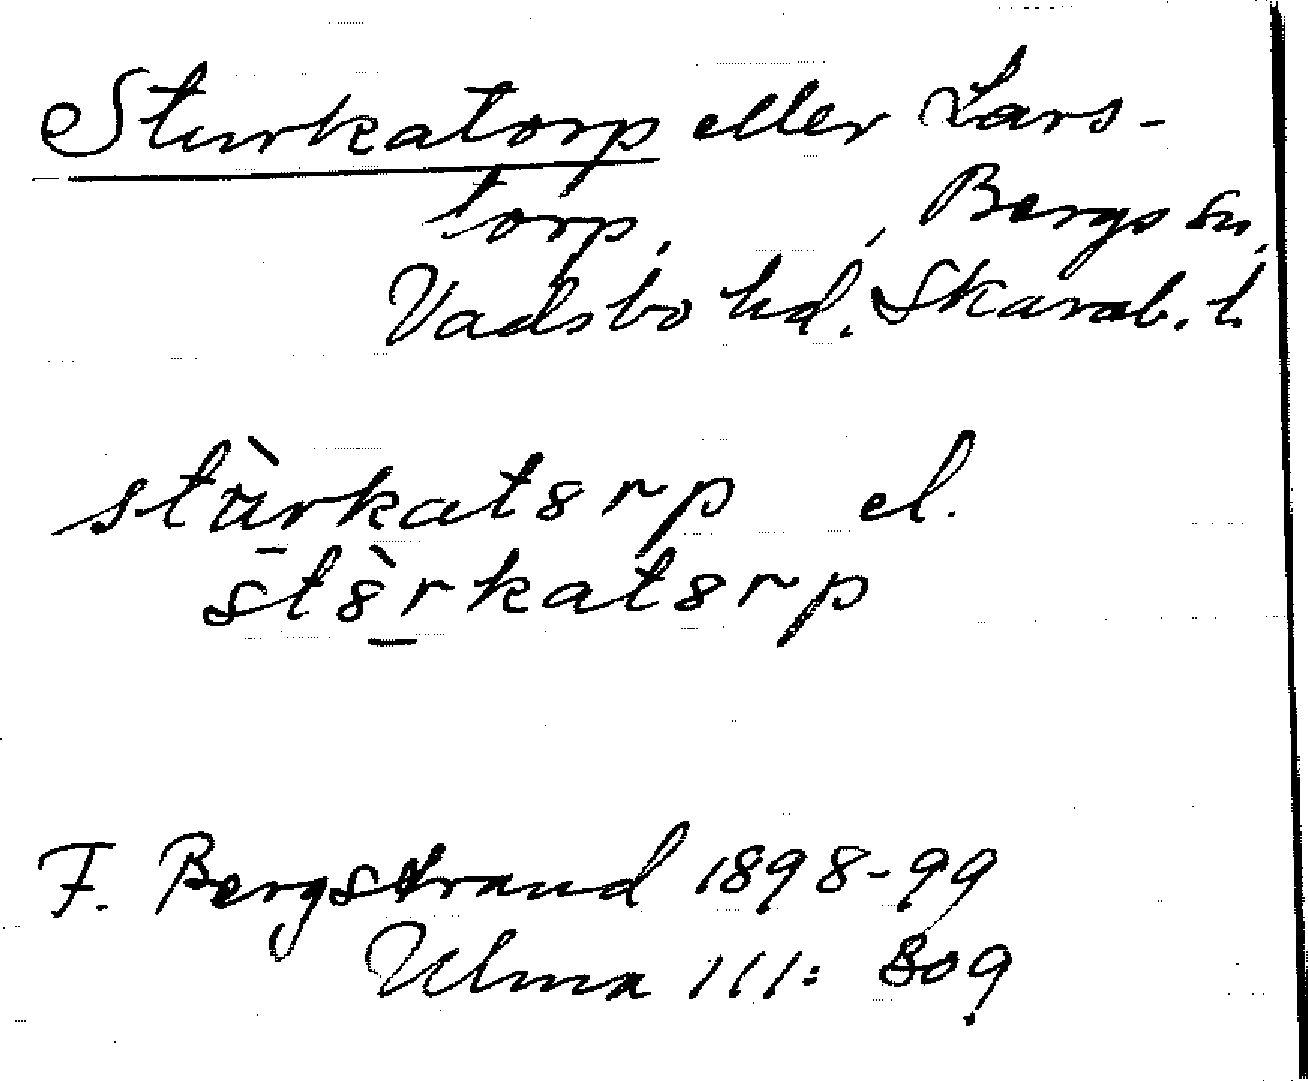 Sturkatorp eller Lars-
torp, , Bergs sn,
Vadsbo hd. Skarab. l.
stùrkat8rp el.
st8̀rkat8rp
F. Bergstrand 1898-99
Ulma 111: 809